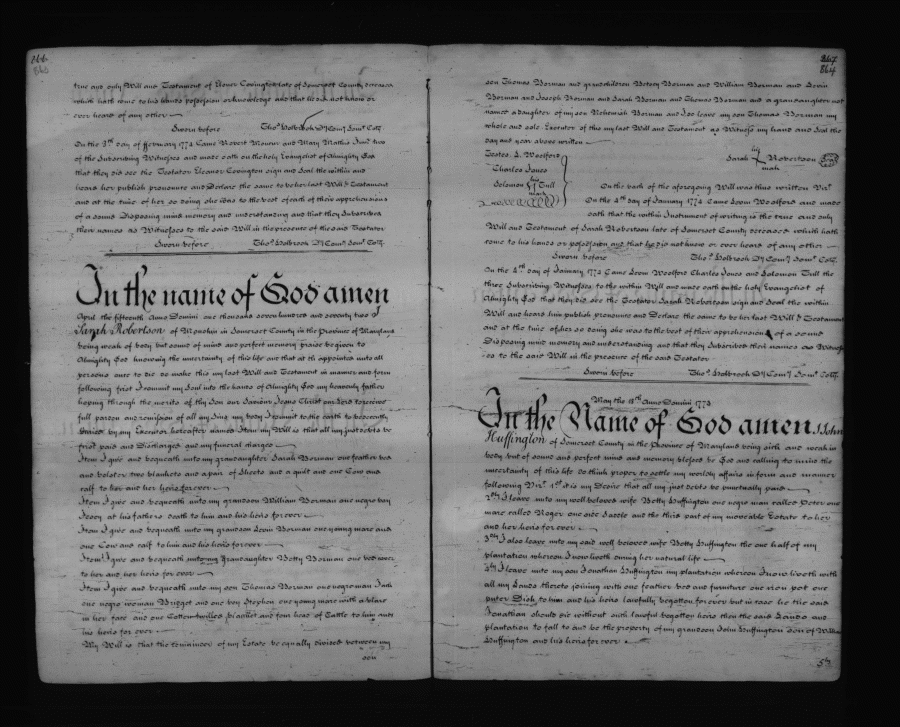 266
true and only Will and Testament of Elenor Covington late of Somerset County deceased
which hath come to his hands possession or knowledge and that he did not know or
ever heard of any other
Sworn before Thos. Holbrook Dy Comy Somt Coty.
On the 3d day of February 1774 Came Robert and Mary Mathis Junr. two
of the Subscribing Witnesses and made oath on the holy Evangelist of Almighty God
that they did see the Testator Eleanor Covington sign and Seal the within and
heard her publish pronounce and Declare the same to be her last Will & Testament
and at the time of her so doing she was to the best of each of their apprehensions
of a sound Disposing mind memory and understanding and that they Subscribed
their names as Witnesses to the said Will in the presence of the said Testator
Sworn before Thos. Holbrook Dy Comy Somt. Coty.
In the name of God amen
April the fifteenth Anno Domini one thousand seven hundred and seventy two I
Sarah Robertson of Monokin in Somerset County in the Province of Maryland
being weak of body but some of mind and perfect memory praise be given to
Almighty God knowing the uncertainty of this life and that at th appointed unto all
persons once to die do make this my last Will and Testament in manner and form
following first I commit my Soul into the hands of Almighty God my heavenly father
hoping through the merits of thy Son our Saviour Jesus Christ our Lord to receive
full pardon and remission of all my Sins my body I commit to the earth to be decently
buried by my Executor hereafter named Item my Will is that all my just debts be
first paid and Discharged and my funeral charges
Item I give and bequeath unto my grandaughter Sarah Norman one feather bed
and bolster two blankets and a pair of Sheets and a quilt and one Cow and
calf to her and her heirs forever
Item I give and bequeath unto my grandson William Norman one negro boy
at his fathers death to him and his heirs for ever
Item I give and bequeath unto my grandson Levin Norman one young mare and
one Cow and calf to him and his heirs for ever
Item I give and bequeath unto my Grandaughter Betty Norman one
to her and her heirs for ever
Item I give and bequeath unto my son Thomas Norman one negro man
one negro woman Bridget and one boy Stephen one young mare with a blaze
in her face and one Cotton twilled blanket and four head of Cattle to him and
his heirs for ever
My Will is that the remainder of my Estate be equally divided between my
son
267
264
son Thomas Norman and grandchildren Betsey Norman and William Norman and Levin
Norman and Joseph Norman and Sarah Norman and Thomas Norman and a grandaughter not
named a daughter of my son Nehemiah Norman and I do leave my son Thomas Norman my
whole and sole Executor of this my last Will and Testament as Witness my hand and Seal the
day and year above written
Testes. L. Woolford
Charles Jones
Solomon his mark Tull
Sarah her mark Robertson Seal
On the back of the aforegoing Will was thus written Vizt.
On the 4th day of January 1774 Came Levin Woolford and made
oath that the within Instrument of writing is the true and only
Will and Testament of Sarah Robertson late of Somerset County deceased which hath
come to his hands or possession and that he did not know or ever heard of any other
Sworn before Thos. Holbrook Dy Comy Somt Coty.
On the 4th day of January 1774 Came Levin Woolford Charles Jones and Solomon Tull the
three Subscribing Witnesses to the within Will and made oath on the holy Evangelist of
Almighty God that they did see the Testator Sarah Robertson sign and Seal the within
Will and heard him publish pronounce and Declare the same to be her last Will & Testament
and at the time of her so doing she was to the best of their apprehensions of a sound
Disposing mind memory and understanding and that they Subscribed their names as Witness
es to the said Will in the presence of the said Testator
Sworn before Thos. Holbrook Dy Comy Somt. Coty.
May the 18th Anno Domini 1773
In the Name of God amen. I John
Huffington of Somerset County in the Province of Maryland being sick and weak in
body but of sound and perfect mind and memory blessed be God and calling to mind the
uncertainty of this life do think proper to settle my worldly affairs in form and manner
following Vizt. 1st it is my Desire that all my just debts be punctually paid
2dly I leave unto my well beloved wife Betty Huffington one negro man called Peter one
mare called Roger one side Saddle and the third part of my moveable Estate to her
and her heirs for ever
3dly I also leave unto my said well beloved wife Betty Huffington the one half of my
plantation whereon I now liveth during her natural life
4thly I leave unto my son Jonathan Huffington my plantation whereon I now liveth with
all my Lands thereto joining with one feather bed and furniture one iron pot one
puter Dish to him and his heirs lawfully begotten for ever but in case he the said
Jonathan should die without such lawful begotten heirs then the said Lands and
plantation to fall to and be the property of my grandson John Huffington Son of William
Huffington and his heirs for ever
5ly